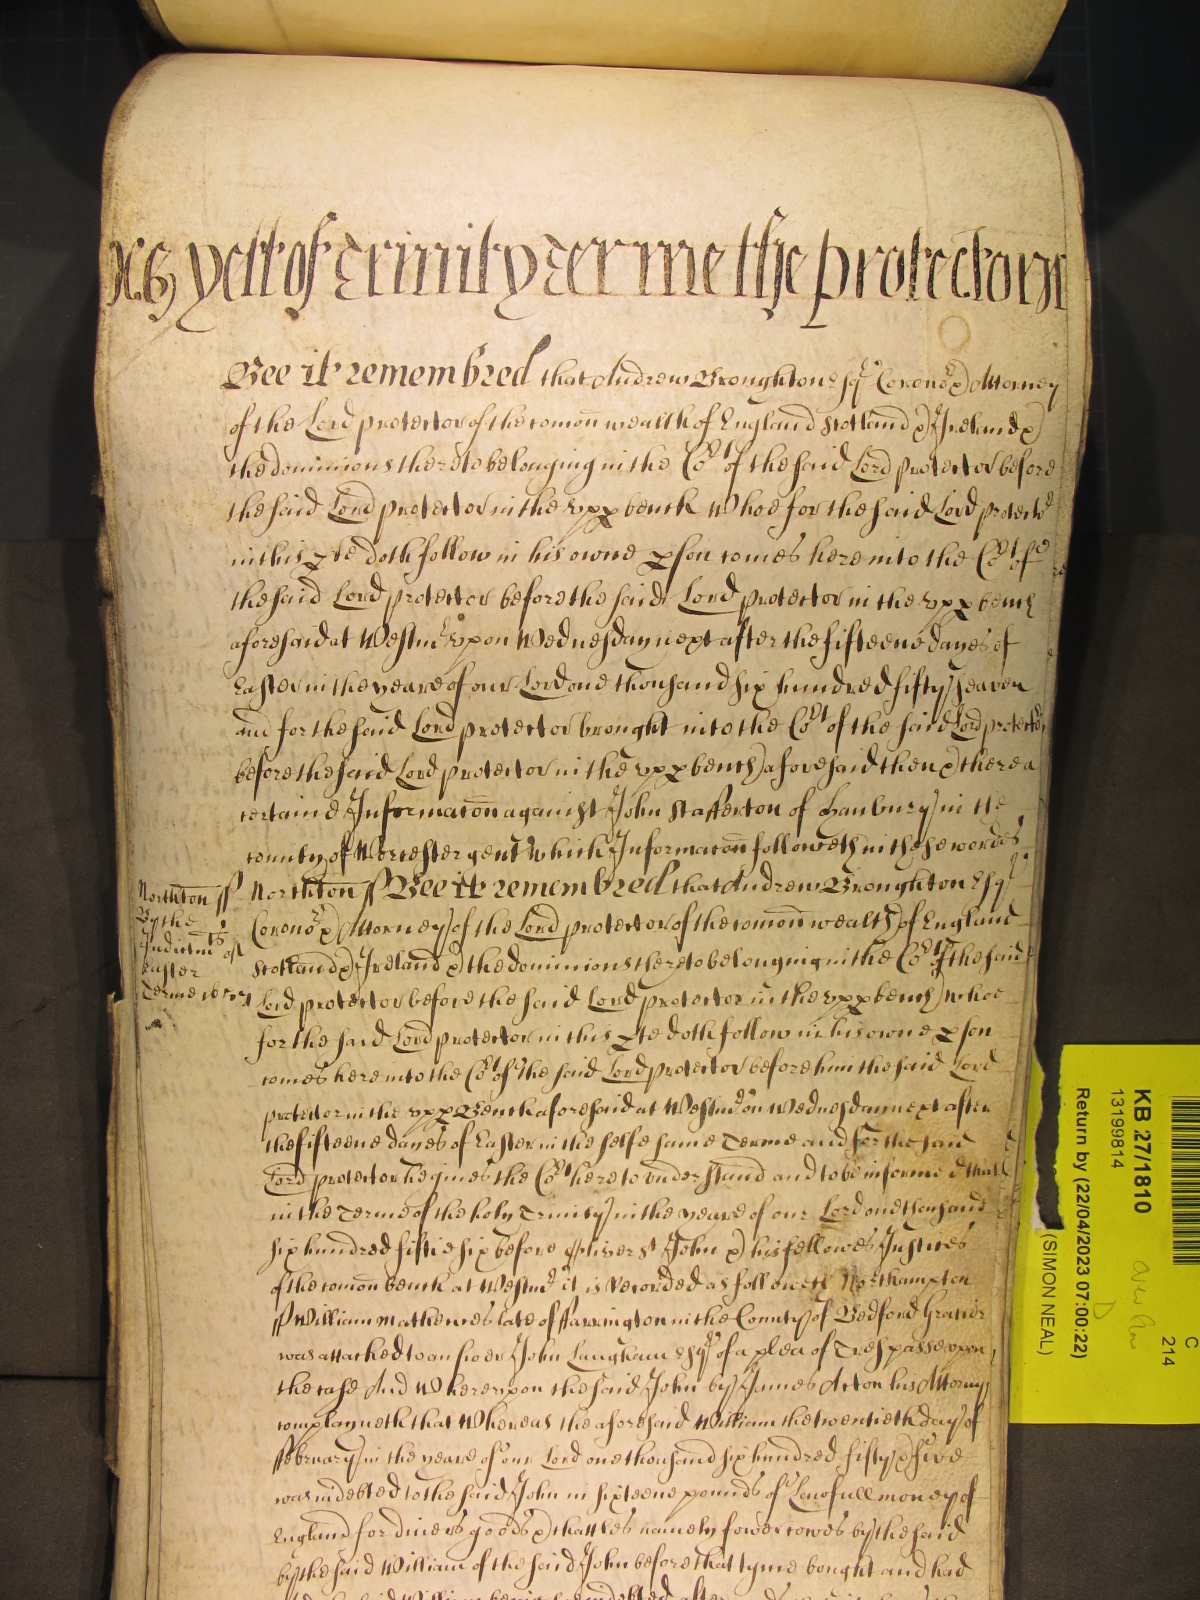 yett of Trinity Terme the Protectors
Bee it remembred that Andrew Broughton Esqr Corono & Attorney
of the Lord protector of the comon wealth of England Scotland & Ireland &
the dominions thereto belonging in the Cot of the said Lord protector before
the said Lord protector in the upp bench Whoe for the said Lord protector
in this pte doth follow in his owne pson comes here into the Cot of
the said Lord protector before the said Lord protector in the upp bench
aforesaid at Westmr upon Wednesday next after the fifteene dayes of
Easter in the yeare of our Lord one thousand six hundred fifty seaven
and for the said Lord protector brought into the Cot of the said Lord protector
before the said Lord protector in the upp bench aforesaid then & there a
certaine Informacon against John Stafferton of Hanbury in the
county of Worcester gent which Informacon followeth in these wordes
Northton ss Bee it remembred that Andrew Broughton Esqr
Corono & Attorney of the Lord protector of the comon wealth of England
Scotland & Ireland & the dominions thereto belonging in the Cot of the said
Lord protector before the said Lord protector in the upp bench whoe
for the said Lord protector in this pte doth follow in his owne pson
comes here into the Cot of the said Lord protector before him the said Lord
protector in the upp Bench aforesaid at Westmr on Wednesday next after
the fifteene dayes of Easter in the selfe same Terme and for the said
Lord protector he gives the Cot here to understand and to be informed that
in the Terme of the holy Trinity in the yeare of our Lord one thousand
six hundred fiftie six before Oliver St John & his fellowes Justices
of the comon bench at Westmr it is Recorded as followeth Northampton
ss William Mathewes late of ffarrington in the County of Bedford Grasier
was attached to answer John Langham Esqr of a plea of Trespasse upon
the case And Whereupon the said John by James Acton his Attorney
complayneth that Whereas the aforesaid William the twentieth day of
ffebruary in the yeare of our Lord one thousand six hundred fifty & five
was indebted to the said John in sixteene pounds of Lawfull money of
England for divers goods & chattles namely fower cowes by the said
by the said William of the said John before that tyme bought and had
Northton ss
By the
Indictmts of
Easter
Terme 1657
KB 27/1810
13199814
Return by (22/04/2023 07:00:22)
(SIMON NEAL)
C
214